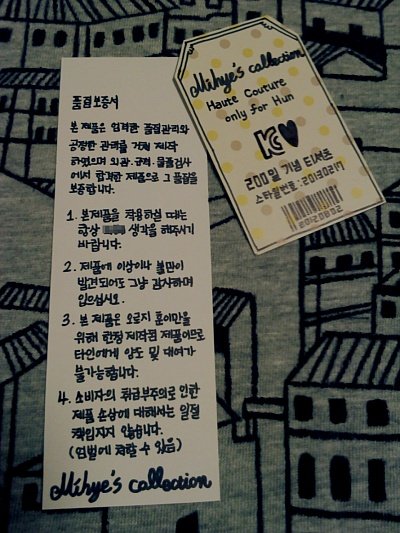 품질보증서
본 제품은 엄격한 품질관리와
공정한 관리를 거쳐 제작
하였으며 외관·규격·품질검사
에서 합격한 제품으로 그 품질을
보증합니다.
1. 본제품을 착용하실 때는
항상 생각을 해주시기
바랍니다.
2. 제품에 이상이나 불만이
발견되어도 그냥 감사하며
입으십시오.
3. 본 제품은 오로지 훈이만을
위해 한정 제작된 제품이므로
타인에게 양도 및 대여가
불가능합니다.
4. 소비자의 취급부주의로 인한
제품 손상에 대해서는 일절
책임지지 않습니다.
(엄벌에 처할 수 있음)
Mihye's collection
Mihye's collection
Haute Couture
only for Hun
KC
200일 기념 티셔츠
스타일번호: 20130217
20120802